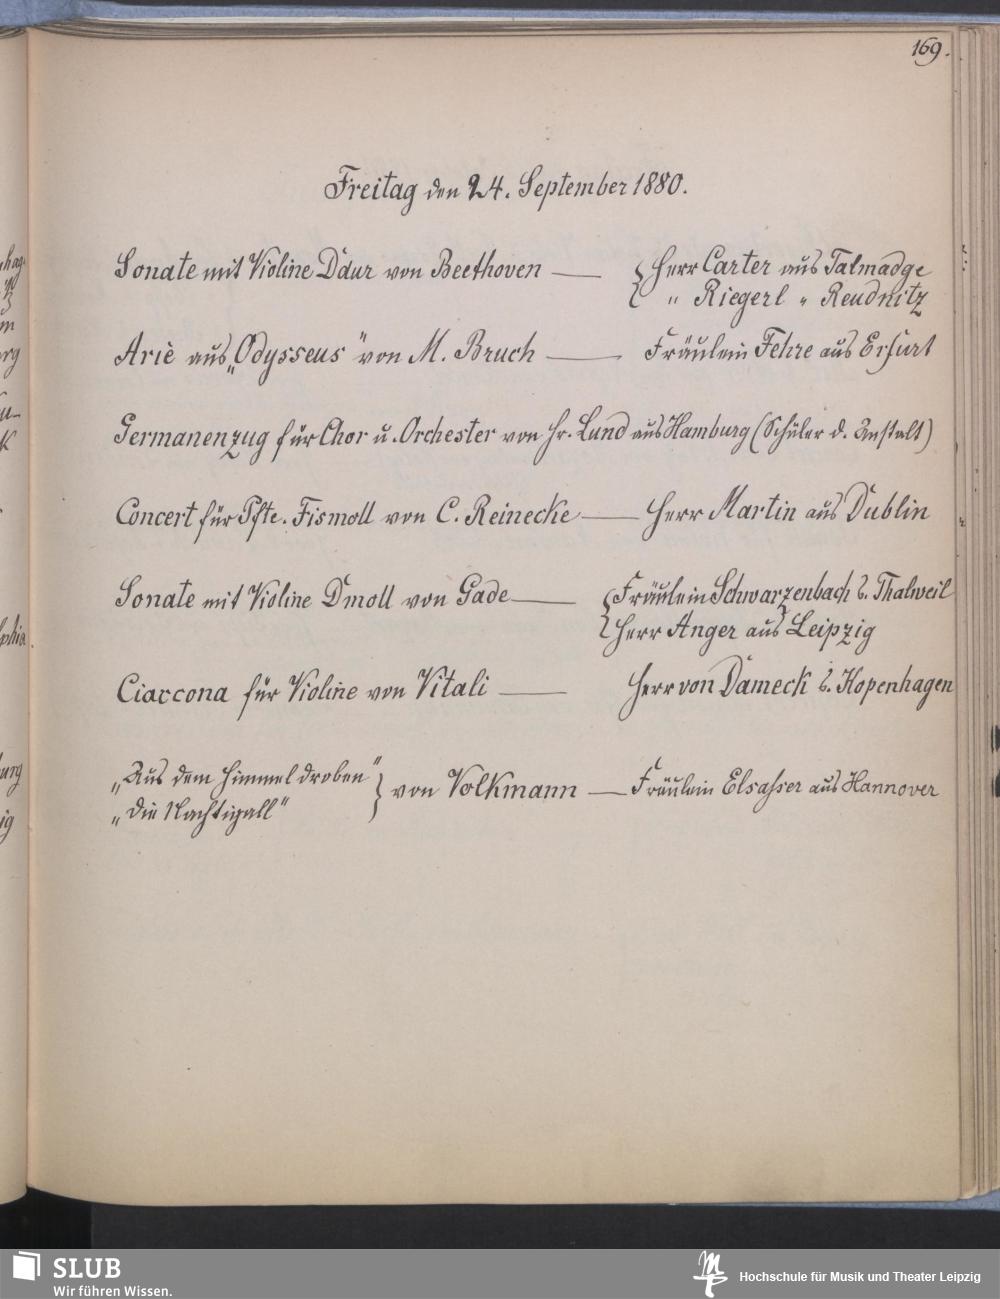 169.
Freitag den 24. September 1880.
Sonate mit Violine Ddur von Beethoven — { Herr Carter aus Talmadge
" Riegerl " Reudnitz
Arie aus „Odysseus" von M. Bruch — Fräulein Fehre aus Erfurt
Germanenzug für Chor u. Orchester von Hr. Lund aus Hamburg (Schüler d. Anstalt)
Concert für Pfte. Fismoll von C. Reinecke — Herr Martin aus Dublin
Sonate mit Violine Dmoll von Gade — { Fräulein Schwarzenbach b. Thalweil
Herr Anger aus Leipzig
Ciaccona für Violine von Vitali — Herr von Dameck b. Kopenhagen
„Aus dem Himmel droben"
„Die Nachtigall" } von Volkmann — Fräulein Elsasser aus Hannover
SLUB
Wir führen Wissen.
Hochschule für Musik und Theater Leipzig